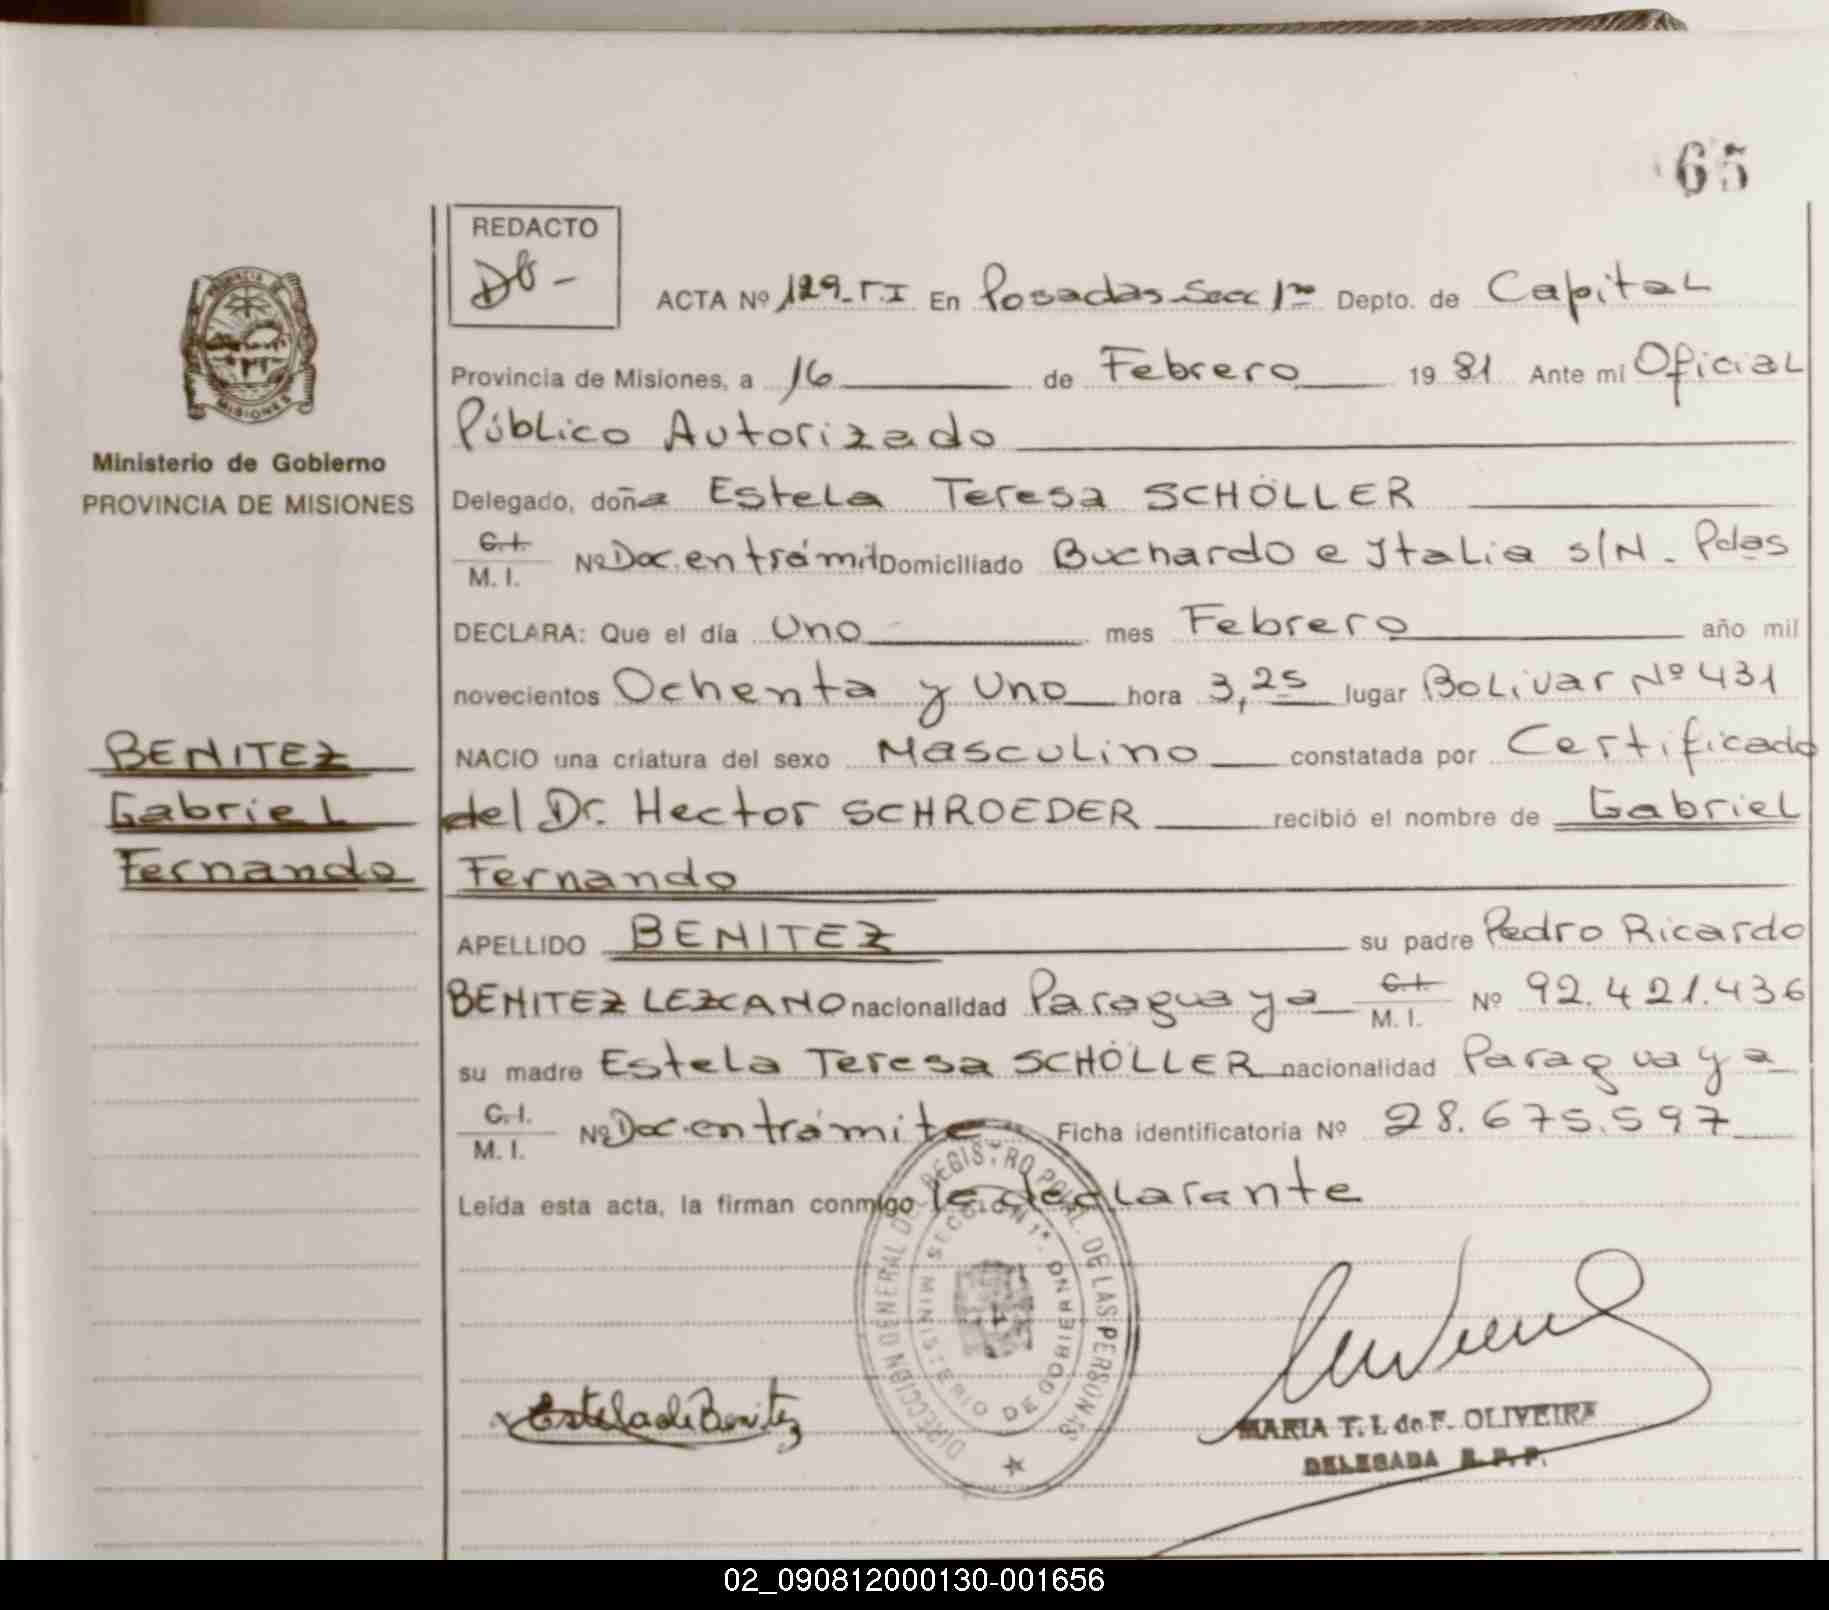 65
REDACTO
ACTA Nº 129-T.I En Posadas-Secc 1ra Depto. de Capital
Provincia de Misiones, a 16 de Febrero 19 81 Ante mi Oficial
Público Autorizado
Ministerio de Gobierno
PROVINCIA DE MISIONES
Delegado, doña Estela Teresa SCHÖLLER
C.I. M. I. Nº Doc. en trámit Domiciliado Buchardo e Italia s/N - Pdas
DECLARA: Que el día Uno mes Febrero año mil
novecientos Ochenta y Uno hora 3,25 lugar Bolivar Nº 431
BENITEZ NACIO una criatura del sexo Masculino constatada por Certificado
Gabriel del Dr. Hector SCHROEDER recibió el nombre de Gabriel
Fernando Fernando
APELLIDO BENITEZ su padre Pedro Ricardo
BENITEZ LEZCANO nacionalidad Paraguaya C.I. M. I. Nº 92.421.436
su madre Estela Teresa SCHÖLLER nacionalidad Paraguaya
C.I. M. I. Nº Doc. en trámite Ficha identificatoria Nº 28.675.597
Leída esta acta, la firman conmigo la declarante
DIRECCION GENERAL DEL REGISTRO PCIAL. DE LAS PERSONAS
SECCION 1ª.
MINISTERIO DE GOBIERNO
Estela de Benitez
MARIA T. I. de F. OLIVEIRA
DELEGADA R. P. P.
PROVINCIA DE MISIONES
02_090812000130-001656